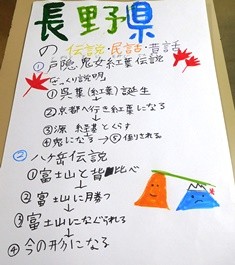 長野県
の伝説・民話・昔話
①戸隠鬼女紅葉伝説
ざっくり説明
①呉葉(紅葉)誕生
②京都へ行き紅葉になる
③源経基とくらす
④鬼になる→⑤倒される
②八ヶ岳伝説
①富士山と背比べ
②富士山に勝つ
③富士山になぐられる
④今の形になる